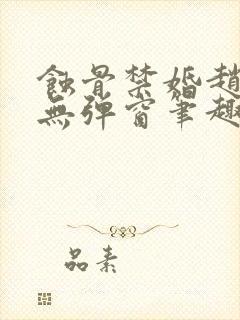 蝕骨禁婚趙
無彈窗筆趣
品素